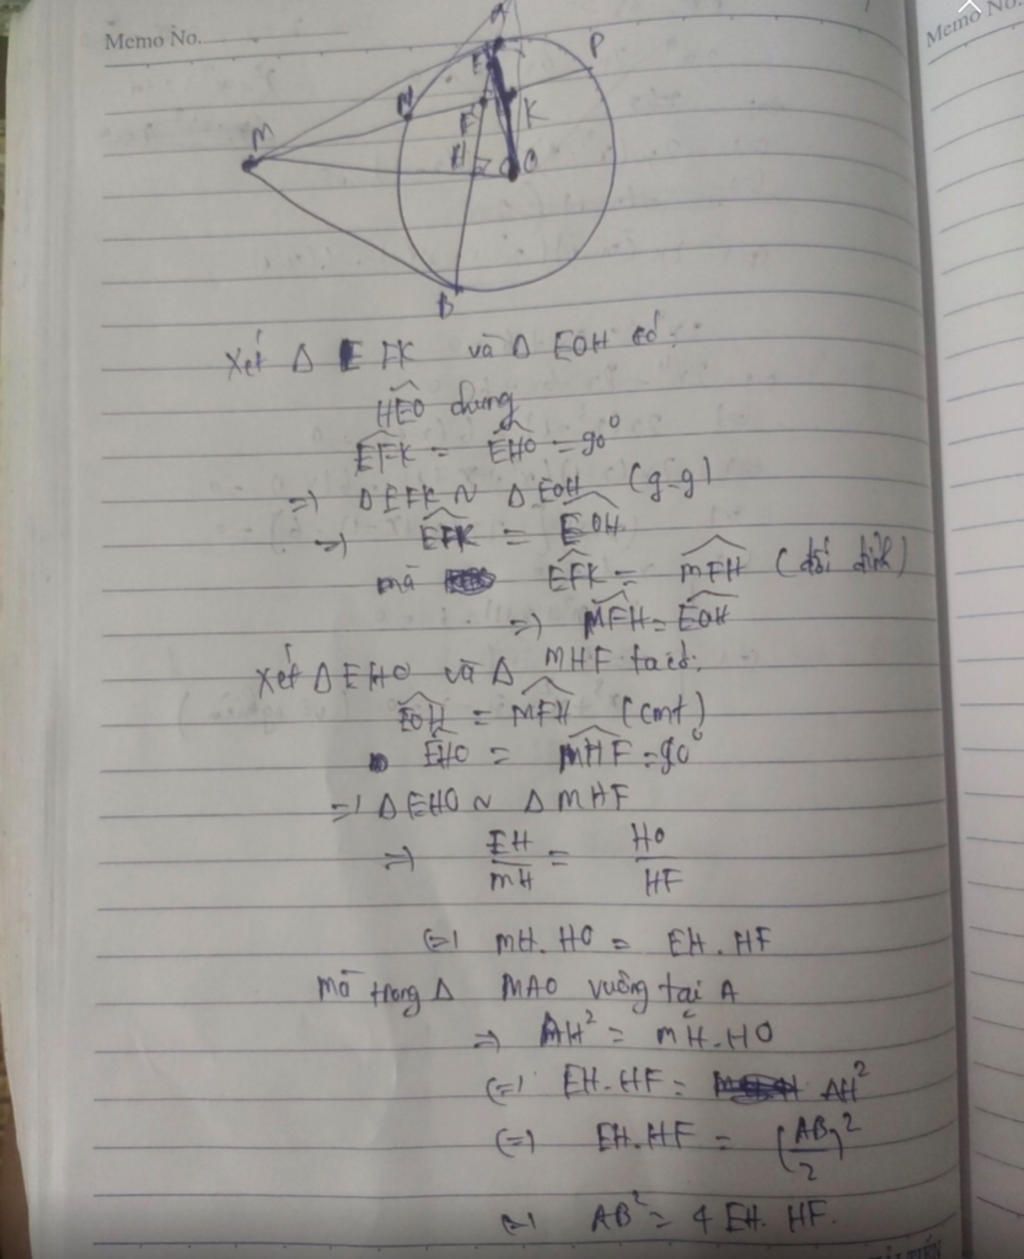 Memo No.
Memo No.
A
P
E
N
K
F
M
H
O
B
Xét Δ EFK và Δ EOH có:
HEO chung
EFK = EHO = 90°
=> Δ EFK ~ Δ EOH (g-g)
=> EFK = EOH
mà EFK = MFH (đối đỉnh)
=> MFH = EOH
Xét Δ EHO và Δ MHF ta có:
EOH = MFH (cmt)
EHO = MHF = 90°
=> Δ EHO ~ Δ MHF
=> EH/MH = HO/HF
<=> MH. HO = EH. HF
Mà trong Δ MAO vuông tại A
=> AH² = MH. HO
<=> EH. HF = AH²
<=> EH. HF = (AB/2)²
<=> AB² = 4 EH. HF.